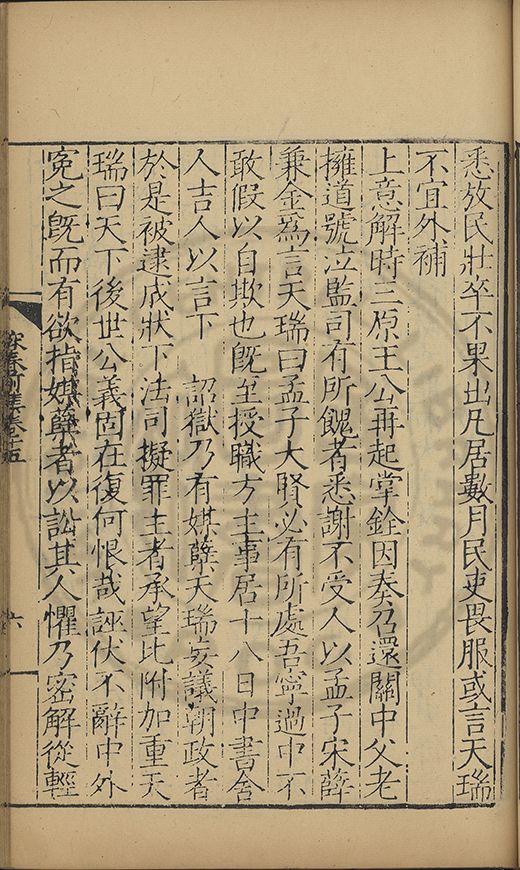 悉放民壯卒不果出凡居數月民吏畏服或言天瑞
不宜外補
上意解時三原王公再起掌銓因奏乃還關中父老
擁道號泣監司有所餽者悉謝不受人以孟子宋薛
兼金爲言天瑞曰孟子大賢必有所處吾寧過中不
敢假以自欺也旣至授職方主事居十八日中書舍
人吉人以言下　詔獄乃有媒孽天瑞妄議朝政者
於是被逮成狀下法司擬罪主者承望比附加重天
瑞曰天下後世公義固在復何恨哉誣伏不辭中外
寃之旣而有欲指媒孽者以訟其人懼乃密解從輕
容春前集卷十五
六